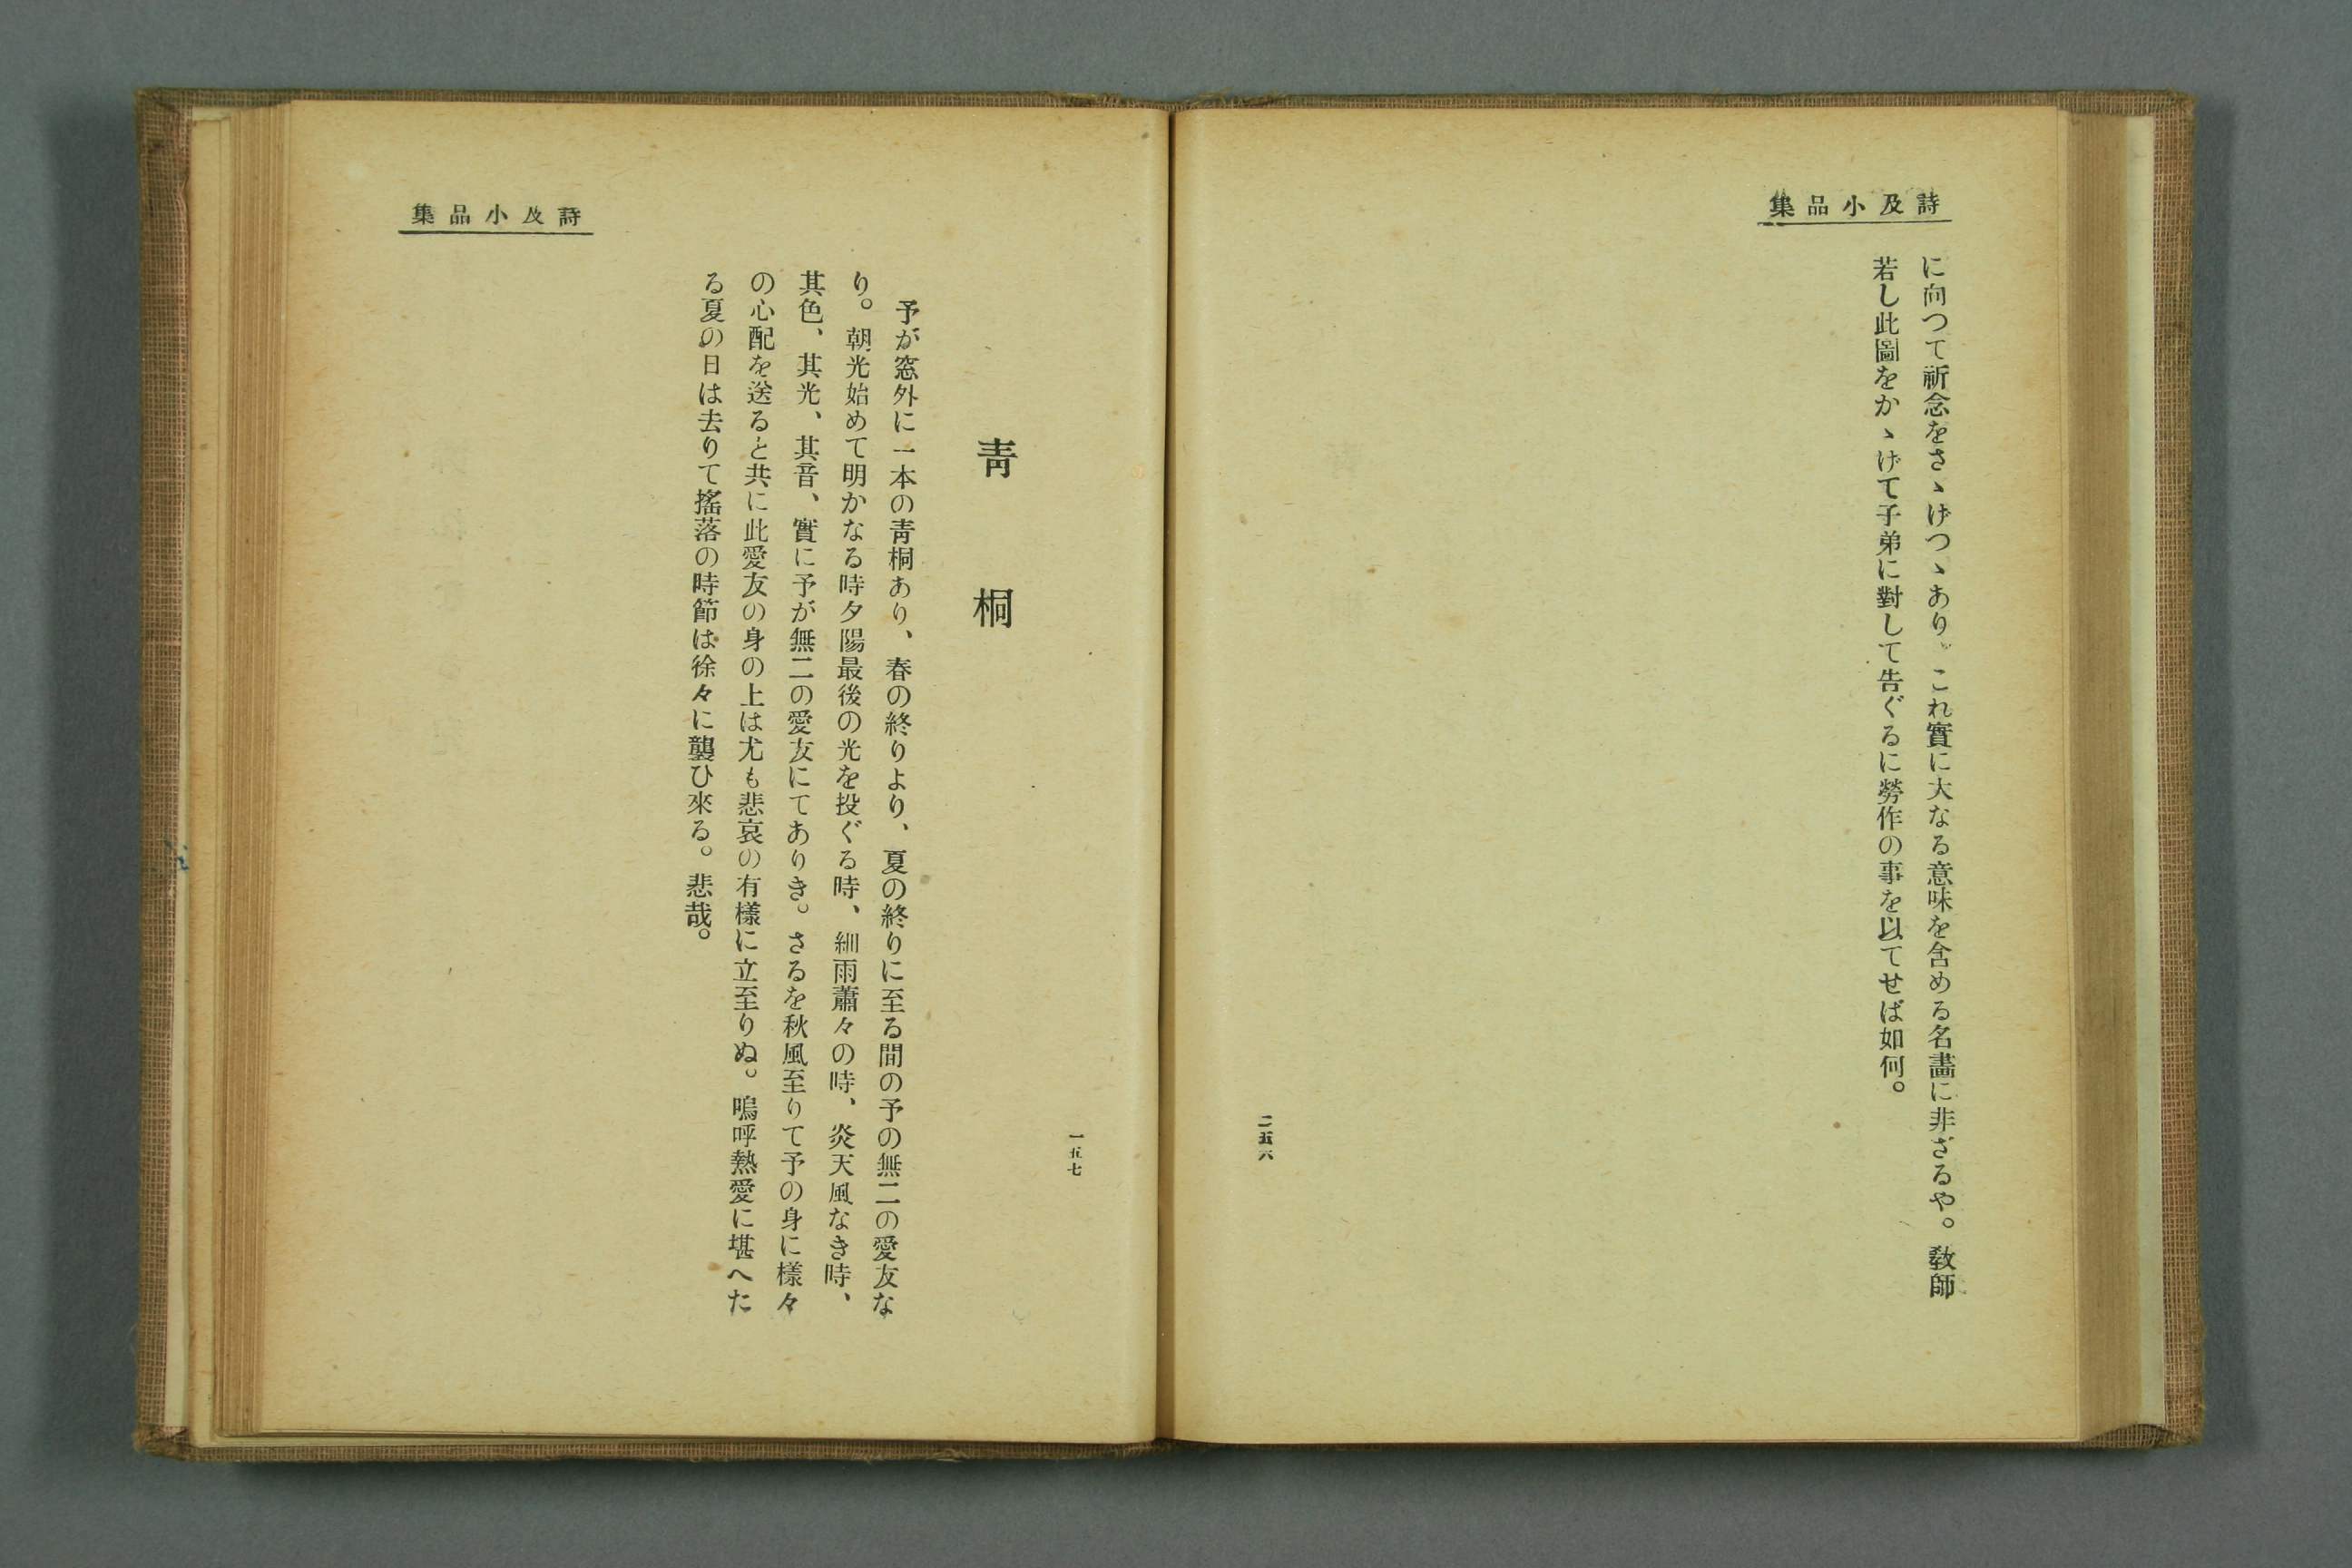 詩及小品集
に向つて祈念をさゝげつゝあり。これ實に大なる意味を含める名畵に非ざるや。敎師
若し此圖をかゝげて子弟に對して告ぐるに勞作の事を以てせば如何。
二五六
詩及小品集
靑桐
予が窓外に一本の靑桐あり、春の終りより、夏の終りに至る間の予の無二の愛友な
り。朝光始めて明かなる時夕陽最後の光を投ぐる時、細雨蕭々の時、炎天風なき時、
其色、其光、其音、實に予が無二の愛友にてありき。さるを秋風至りて予の身に樣々
の心配を送ると共に此愛友の身の上は尤も悲哀の有樣に立至りぬ。嗚呼熱愛に堪へた
る夏の日は去りて搖落の時節は徐々に襲ひ來る。悲哉。
一五七